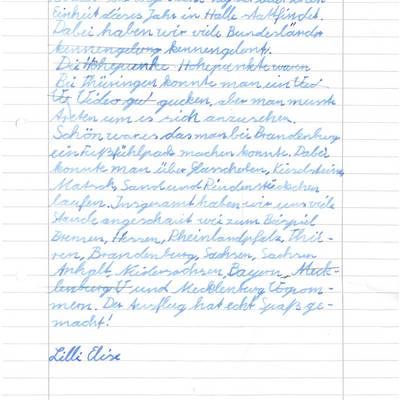 Einheit dieses Jahr in Halle stattfindet.
Dabei haben wir viele Bundesländer
kennengelong kennengelont.
Die Höhepunkte Höhepunkte waren
Bei Thüringen konnte man ein Vid
Vi Video gut gucken, aber man musste
um es sich anzusehen.
Schön war es das man bei Brandenburg
ein Fußfühlpad machen konnte. Dabei
konnte man über Glasscherben, Kieselsteine
Matsch, Sand und Rindenstückchen
laufen. Insgesamt haben wir uns viele
Stände angeschaut wie zum Beispiel
Bremen, Hessen, Rheinlandpfalz, Thü-
ren, Brandenburg, Sachsen, Sachsen
Anhalt, Niedersachsen, Bayern, Meck-
lenburg V und Mecklenburg Vorpom-
mern. Der Ausflug hat echt Spaß ge-
macht!
Lilli Elise